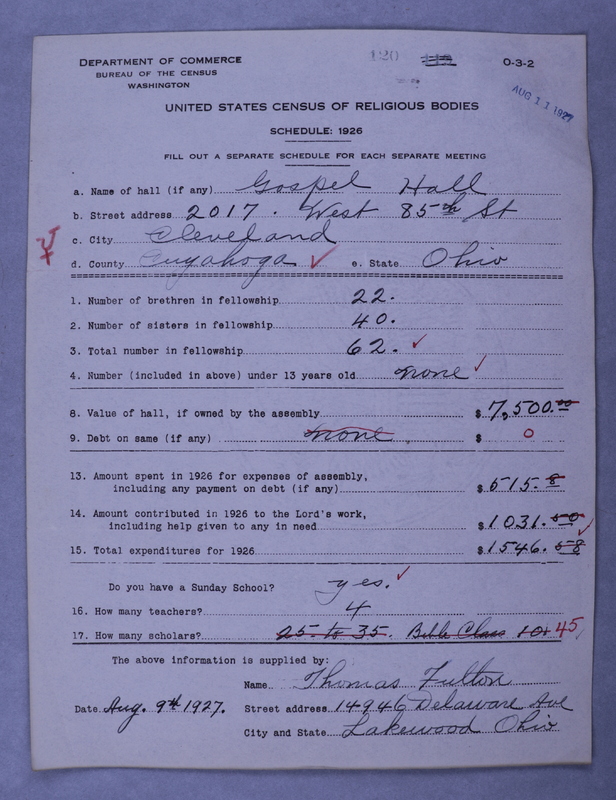 DEPARTMENT OF COMMERCE
BUREAU OF THE CENSUS
WASHINGTON
120
O-3-2
AUG 11 1927
UNITED STATES CENSUS OF RELIGIOUS BODIES
SCHEDULE: 1926
FILL OUT A SEPARATE SCHEDULE FOR EACH SEPARATE MEETING
a. Name of hall (if any) Gospel Hall
b. Street address 2017. West 85th St
c. City Cleveland
d. County Cuyahoga ✓ e. State Ohio
1. Number of brethren in fellowship 22.
2. Number of sisters in fellowship 40.
3. Total number in fellowship 62. ✓
4. Number (included in above) under 13 years old none ✓
8. Value of hall, if owned by the assembly $ 7,500.00
9. Debt on same (if any) none $ 0
13. Amount spent in 1926 for expenses of assembly,
including any payment on debt (if any) $ 515. 8
14. Amount contributed in 1926 to the Lord's work,
including help given to any in need $ 1031. 50
15. Total expenditures for 1926 $ 1546. 58 ✓
Do you have a Sunday School? yes. ✓
16. How many teachers? 4
17. How many scholars? 25 to 35. Bible Class 10. 45
The above information is supplied by:
Name Thomas Fulton
Date Aug. 9th 1927. Street address 14946 Delaware Ave
City and State Lakewood Ohio